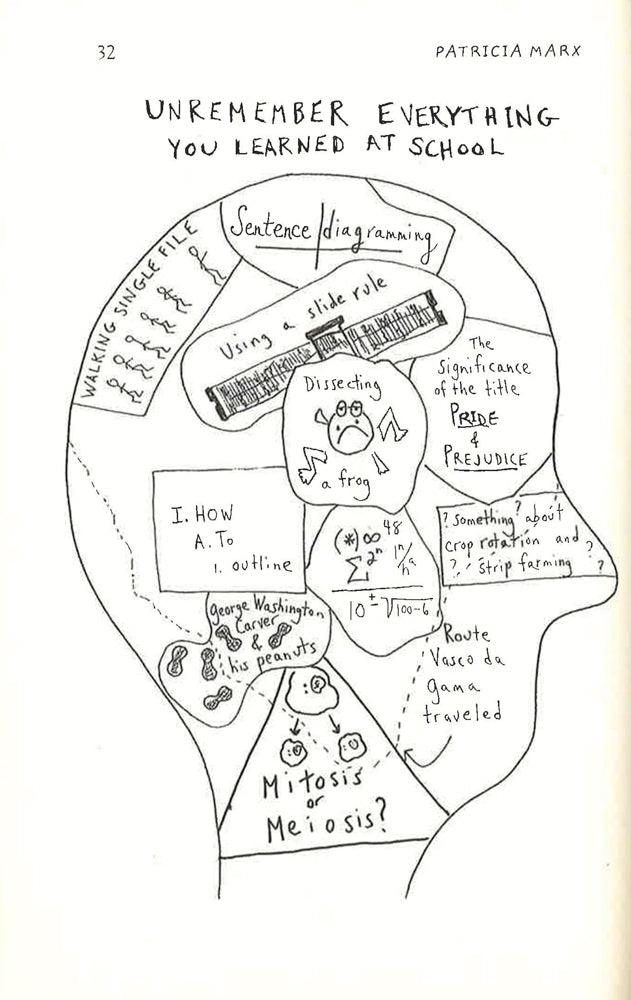 32
PATRICIA MARX
UNREMEMBER EVERYTHING
YOU LEARNED AT SCHOOL
Sentence/diagramming
WALKING SINGLE FILE
Using a slide rule
The
Significance
of the title
PRIDE
&
PREJUDICE
Dissecting
a frog
I. HOW
A. To
1. outline
(*)∞ 48
∑ 2ⁿ 1ⁿ/hª
10 ± √100-6
? Something? about
crop rotation and
? strip farming ? ?
George Washington
Carver
&
his peanuts
Route
Vasco da
gama
traveled
Mitosis
or
Meiosis?